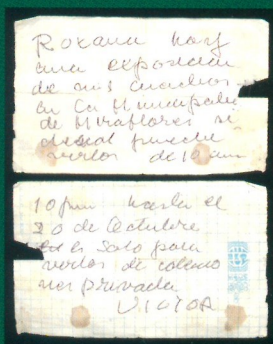 Roxana hay
una exposicion
de mis cuadros
en la Municipalid
de Miraflores si
desea puede
verlos de 10 am
10 pm hasta el
30 de Octubre
es solo para
verlos de colecc
privada
VICTOR